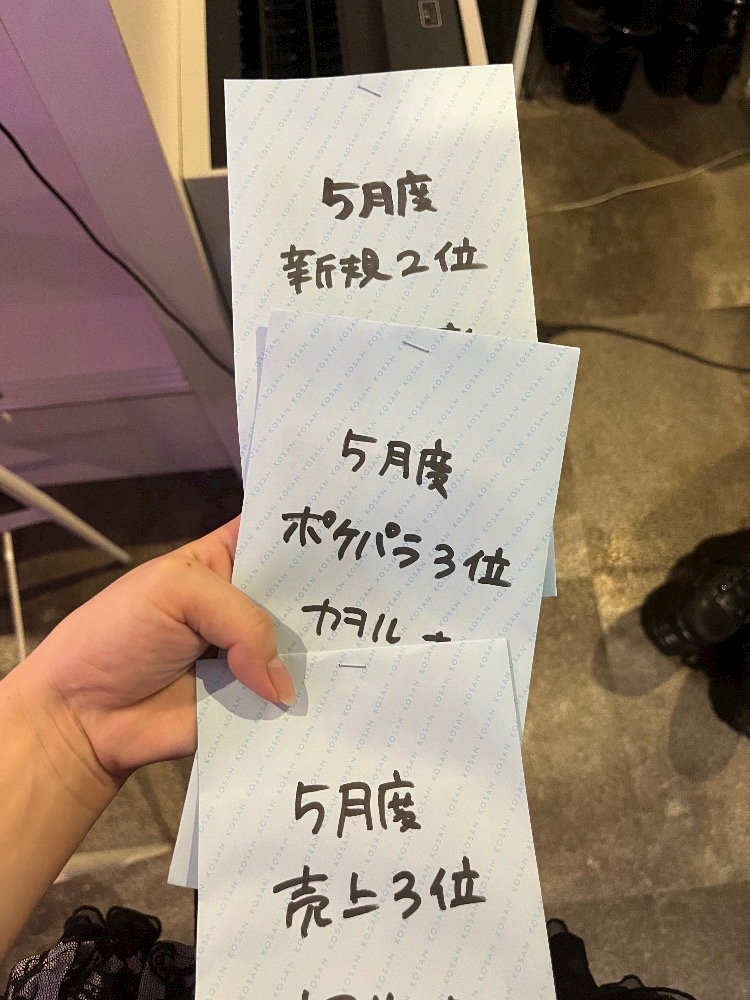 5月度
新規2位
5月度
ポケパラ3位
カヲル
5月度
売上3位
KOSAN